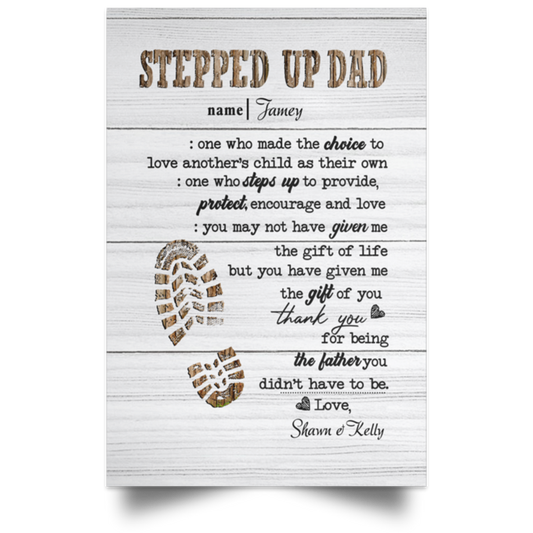 STEPPED UP DAD
name| Jamey
: one who made the choice to
love another's child as their own
: one who steps up to provide,
protect, encourage and love
: you may not have given me
the gift of life
but you have given me
the gift of you
thank you
for being
the father you
didn't have to be.
Love,
Shawn & Kelly